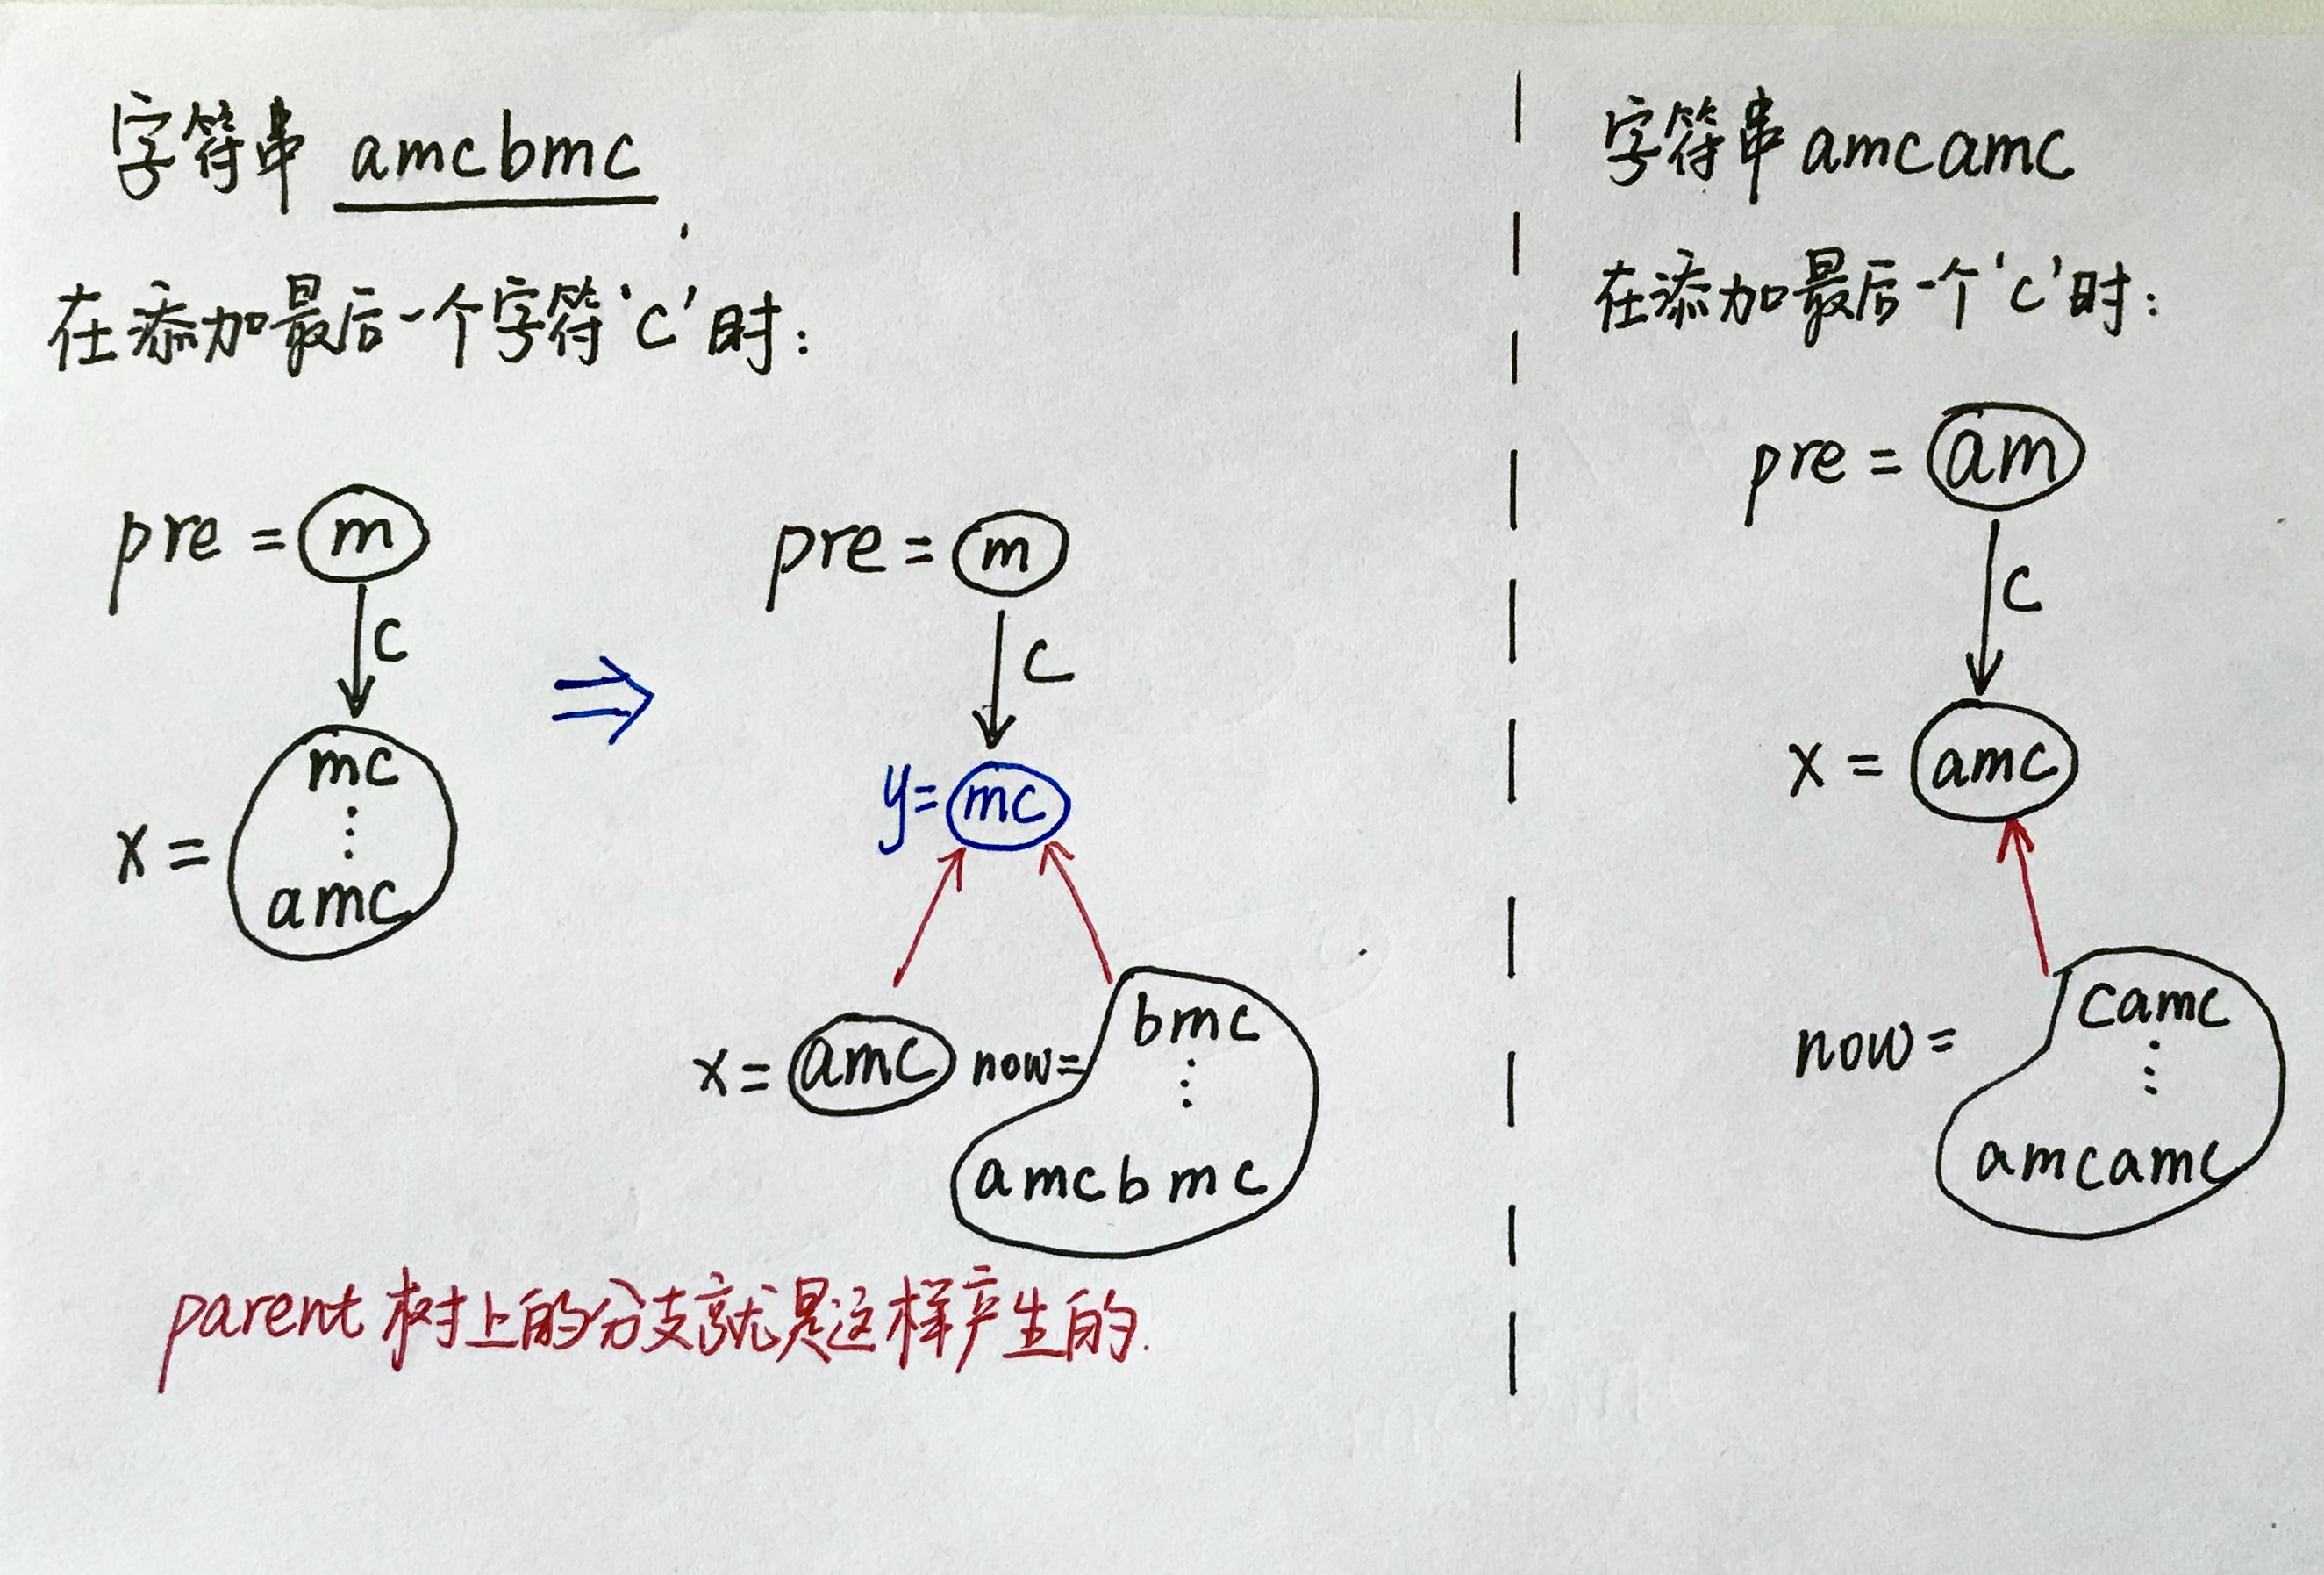 字符串 amcbmc
在添加最后一个字符'c'时:
pre = m
c
x =
mc
⋮
amc
⇒
pre = m
c
y = mc
x = amc
now =
bmc
⋮
amcbmc
parent树上的分支就是这样产生的.
字符串amcamc
在添加最后一个'c'时:
pre = am
c
x = amc
now =
camc
⋮
amcamc